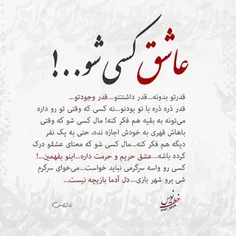 عاشق کسی شو...!
قدرتو بدونه...قدر داشتنتو...قدر وجودتو...
قدر ذره ذره با تو بودنو...نه کسی که وقتی تو رو داره
می‌تونه به بقیه هم فکر کنه! مال کسی شو که وقتی
باهاش قهری به خودش اجازه نده، حتی به یک نفر
دیگه هم فکر کنه...مال کسی شو که معنای عشقو درک
کرده باشه...عشق حریم و حرمت داره...اینو بفهمین...!
کسی رو واسه سرگرمی نباید خواست...می‌خوای سرگرم
شی برو شهر بازی...دل آدما بازیچه نیست...